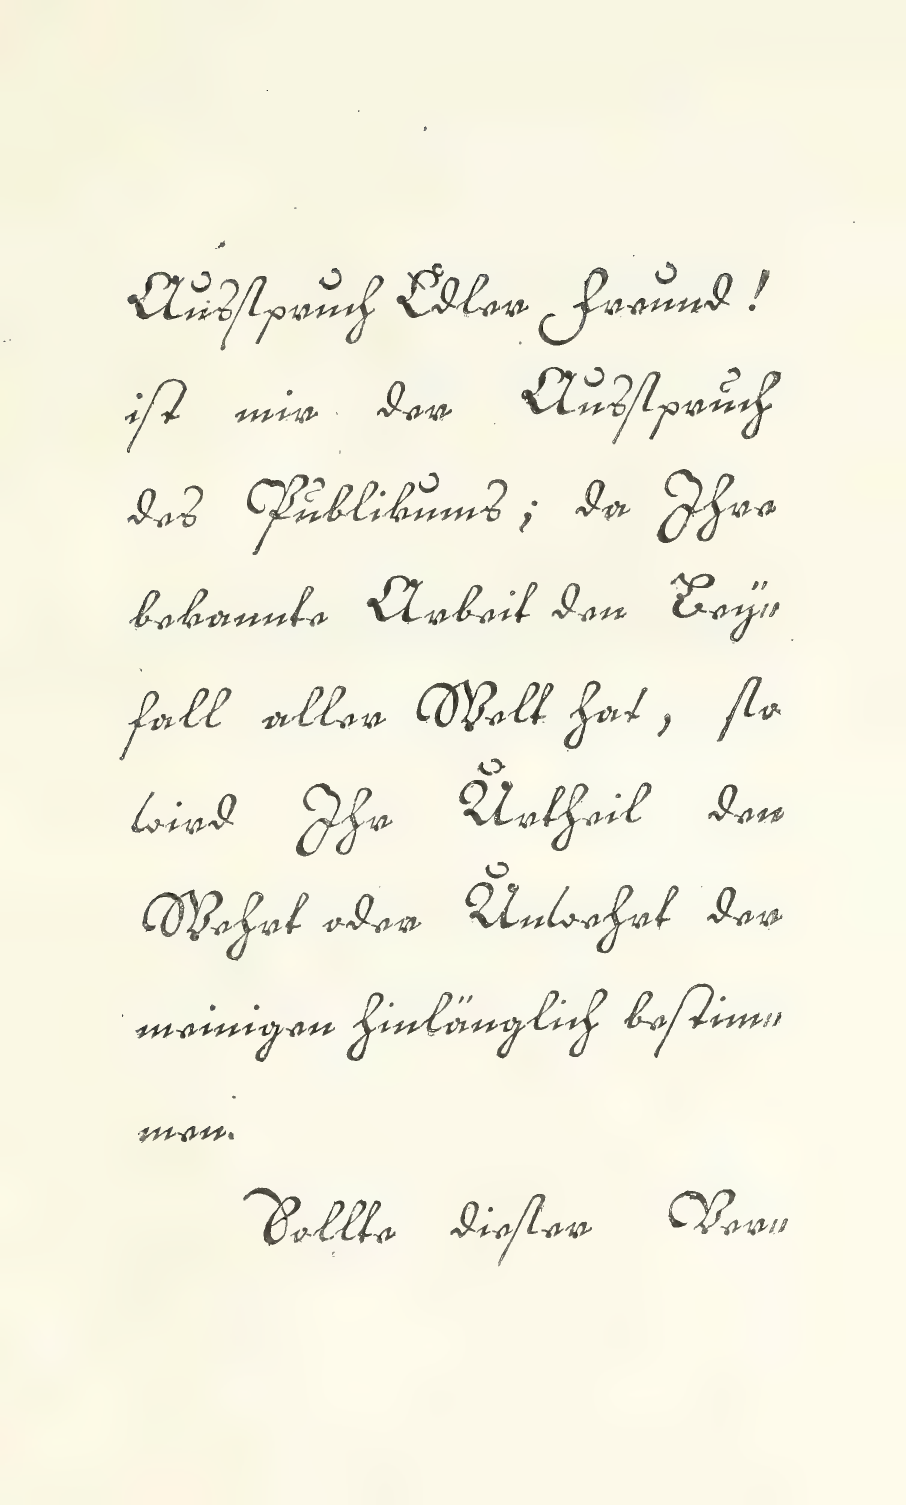 Ausspruch Edler Freund!
ist mir der Ausspruch
des Publikums; da Ihre
bekannte Arbeit den Beÿ=
fall aller Welt hat, so
wird Ihr Urtheil den
Wehrt oder Unwehrt der
meinigen hinlänglich bestim=
men.
Sollte dieser Ver=